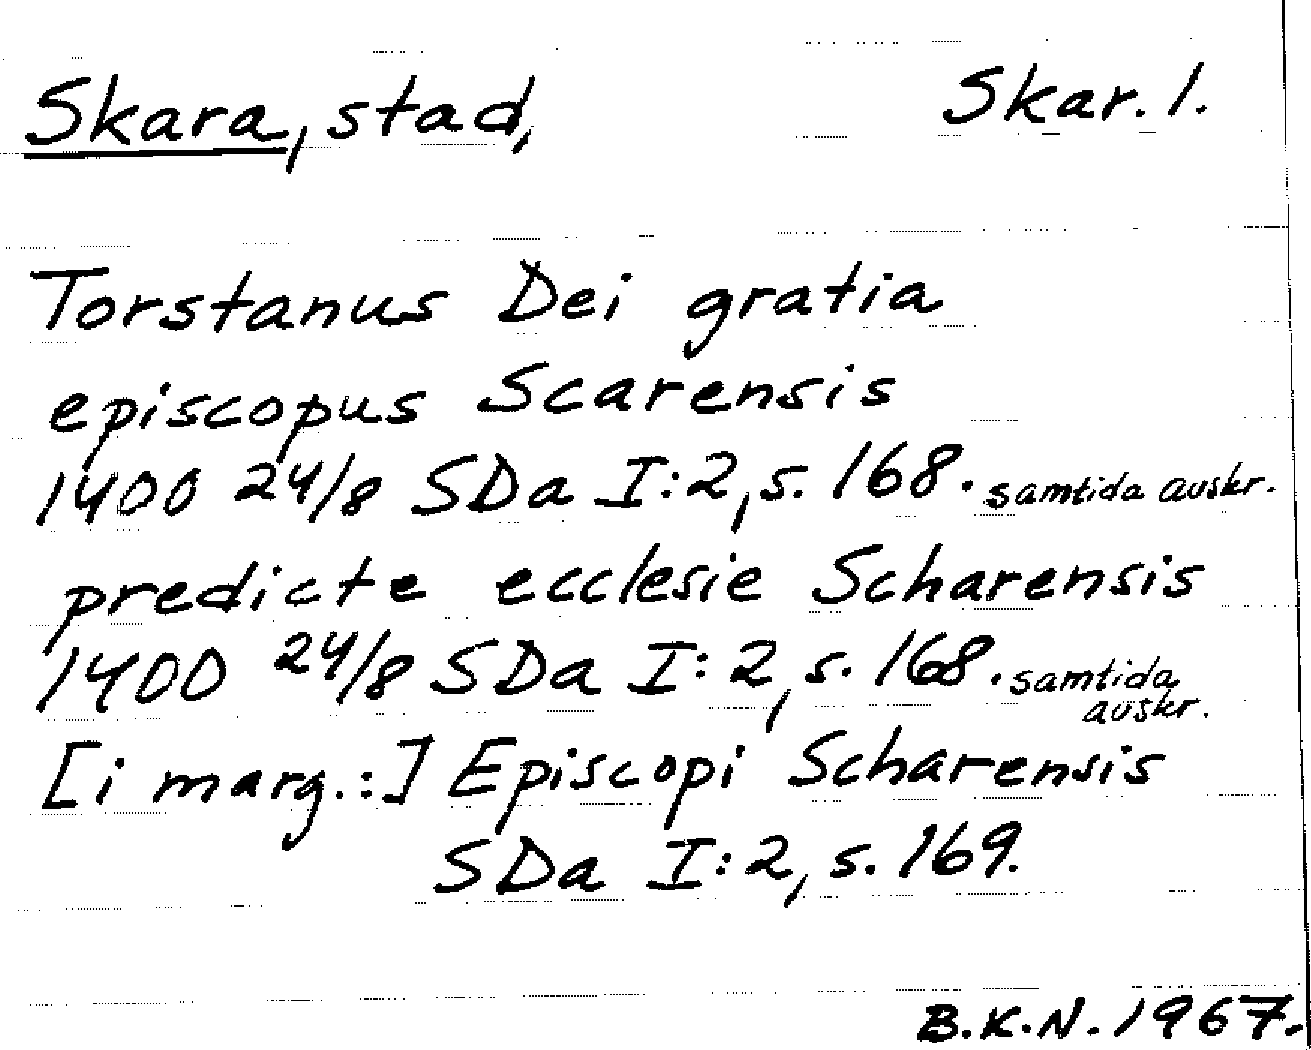 Skara, stad, Skar. 1.
Torstanus Dei gratia
episcopus Scarensis
1400 24/8 SDa I:2, s. 168. samtida avskr.
predicte ecclesie Scharensis
1400 24/8 SDa I:2, s. 168. samtida
avskr.
[i marg.:] Episcopi Scharensis
SDa I:2, s. 169.
B.K.N. 1967.